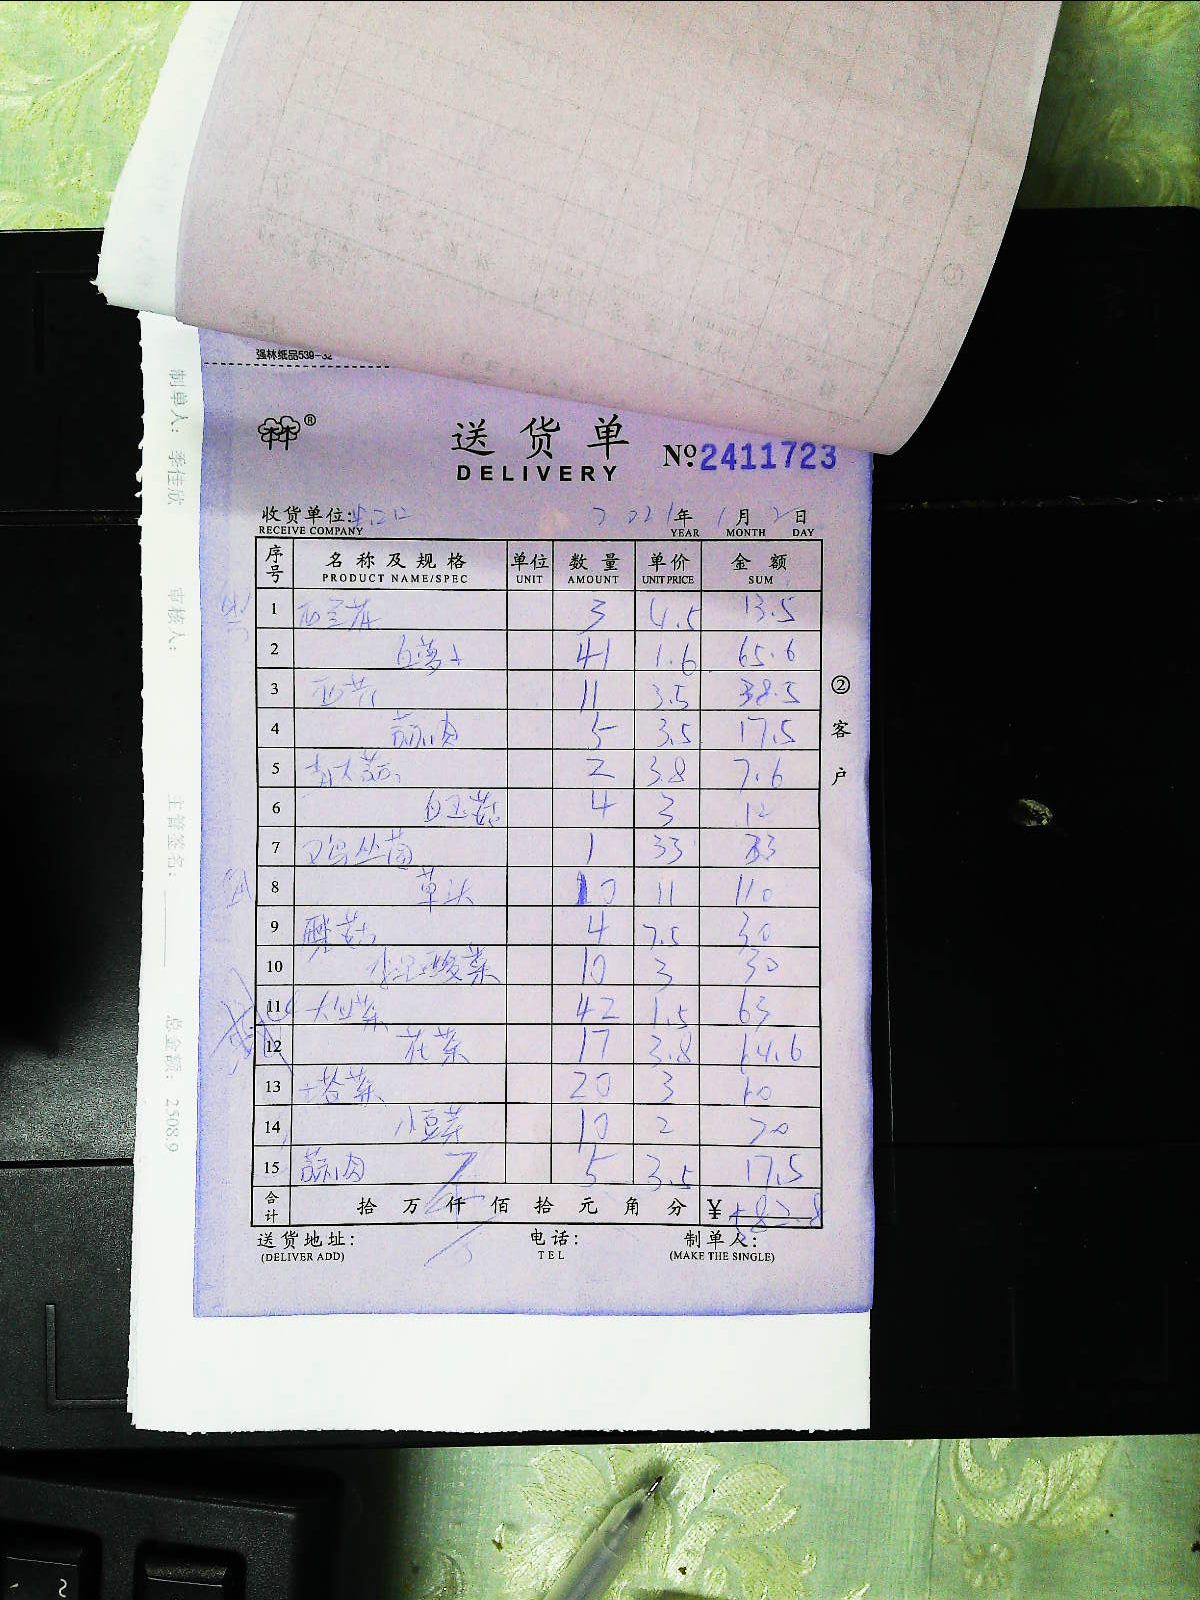 强林纸品539-32
送货单
DELIVERY
№ 2411723
收货单位: 2021年 1月 2日
RECEIVE COMPANY YEAR MONTH DAY
序号 名称及规格 单位 数量 单价 金额
PRODUCT NAME/SPEC UNIT AMOUNT UNIT PRICE SUM
1 西兰花 3 4.5 13.5
2 白萝卜 41 1.6 65.6
3 西芹 11 3.5 38.5
4 蒜肉 5 3.5 17.5
5 2 3.8 7.6
6 白玉菇 4 3 12
7 鸡丛菌 1 33 33
8 草头 10 11 110
9 菇 4 7.5 30
10 酸菜 10 3 30
11 大白菜 42 1.5 63
12 花菜 17 3.8
13 塔菜 20 3
14 小豆芽 10 2 20
15 蒜肉 5 3.5 17.5
合计 拾 万 仟 佰 拾 元 角 分 ¥ 582.8
送货地址: 电话: 制单人:
(DELIVER ADD) TEL (MAKE THE SINGLE)
② 客户
制单人: 季佳欣 审核人: 主管签名: 总金额: 2508.9